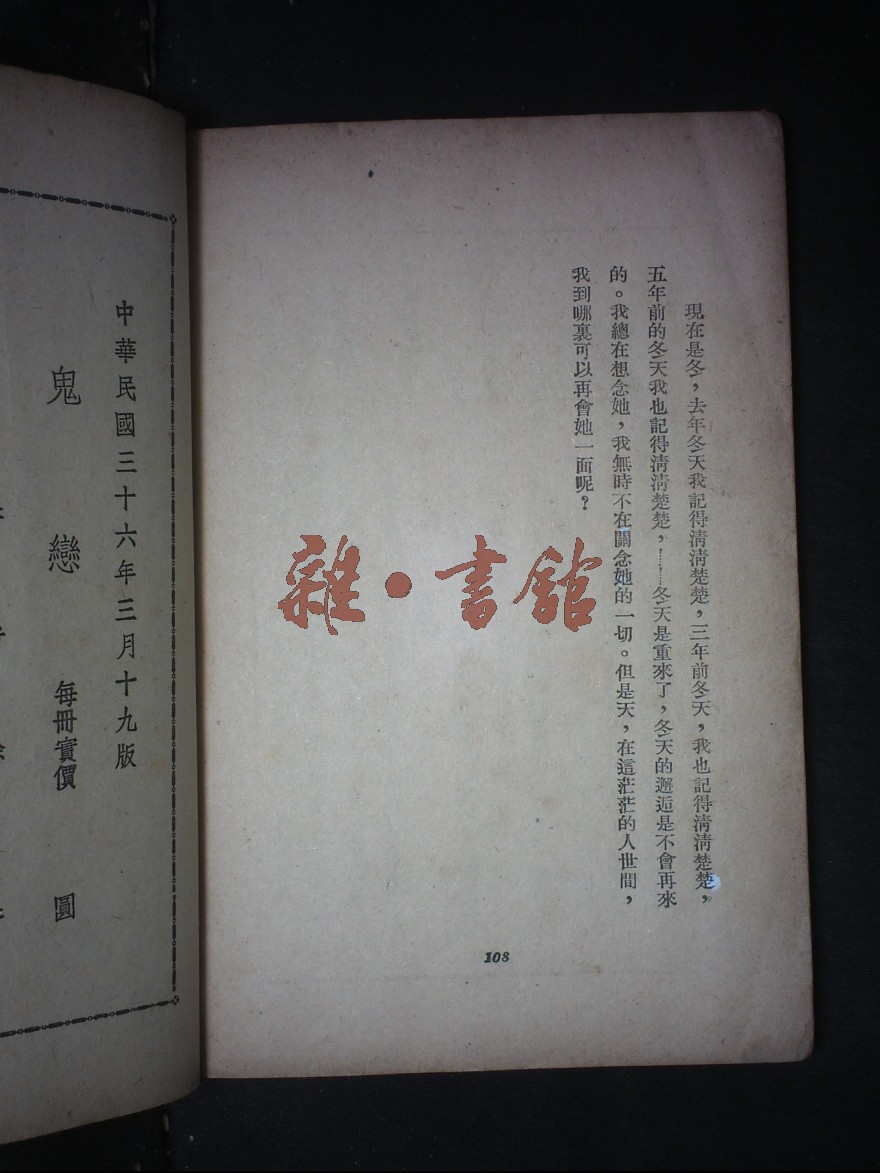 現在是冬，去年冬天我記得淸淸楚楚，三年前冬天，我也記得淸淸楚楚，
五年前的冬天我也記得淸淸楚楚，……冬天是重來了，冬天的邂逅是不會再來
的。我總在想念她，我無時不在關念她的一切。但是天，在這茫茫的人世間，
我到哪裏可以再會她一面呢？
108
雜·書館
中華民國三十六年三月十九版
鬼戀 每冊實價 圓